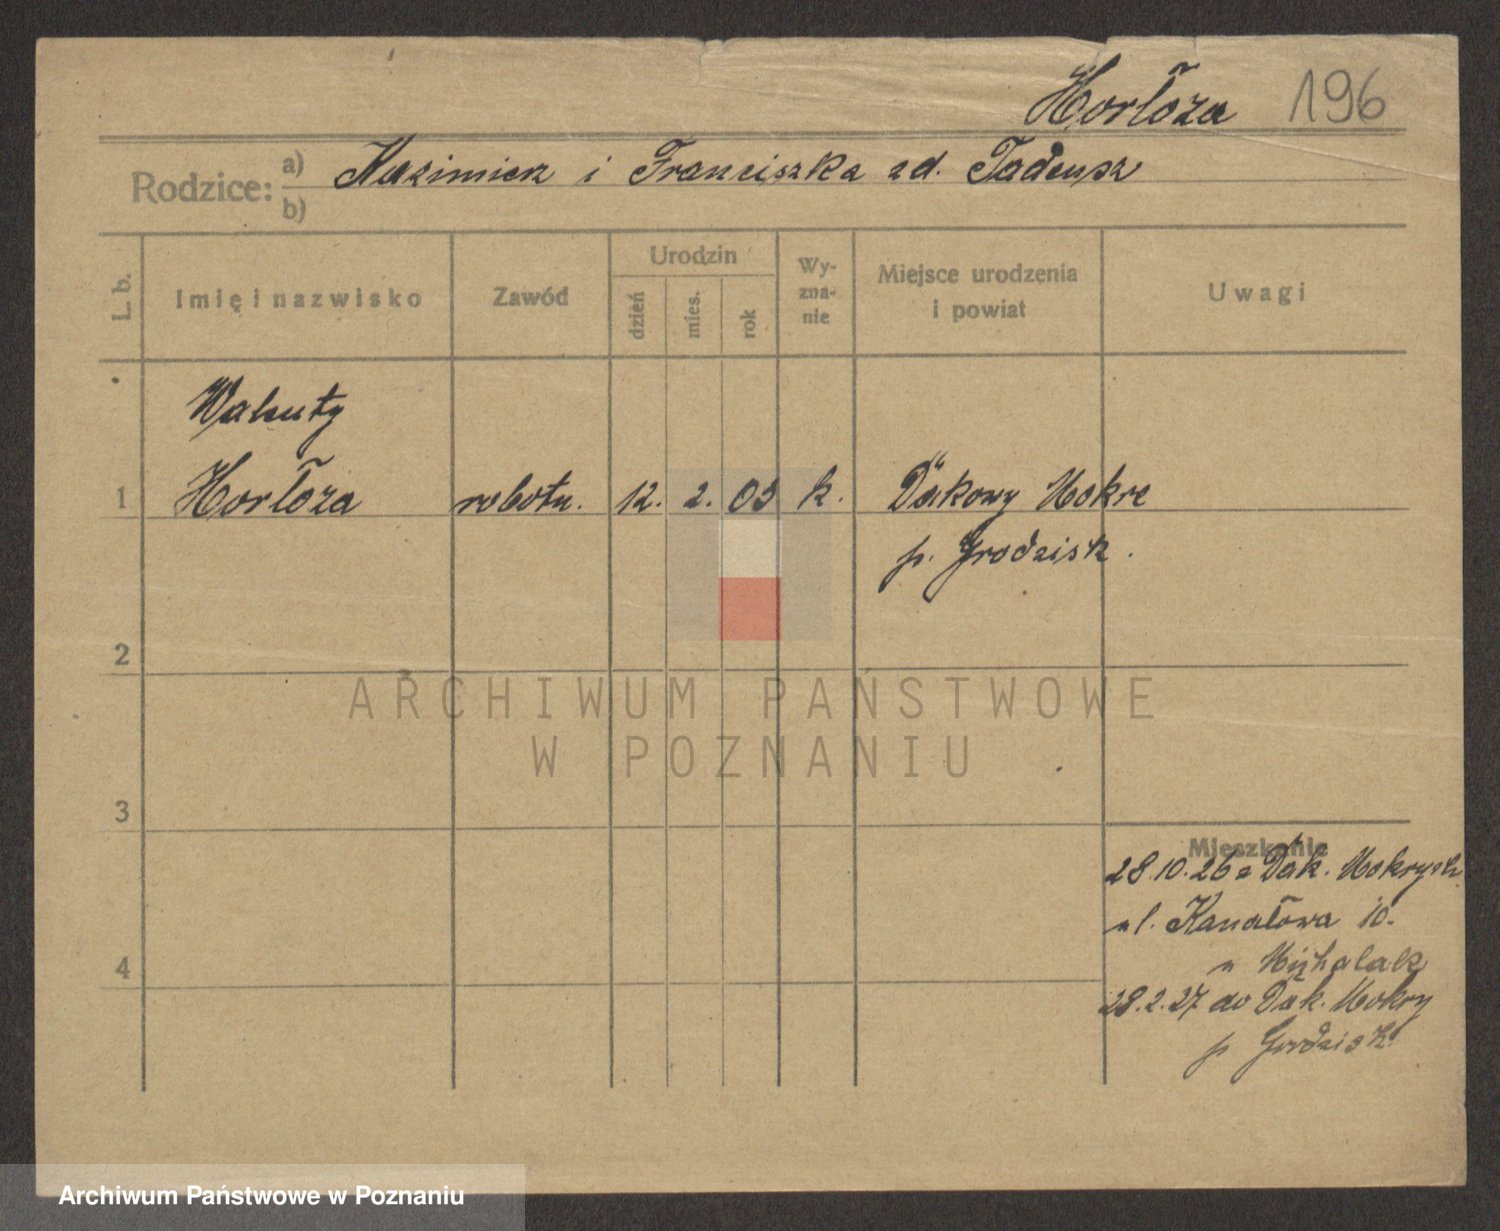 Horłoza 196
Rodzice: a) Kazimierz i Franciszka zd. Tadeusz
b)
L. b. Imię i nazwisko Zawód Urodzin dzień mies. rok Wy-zna-nie Miejsce urodzenia i powiat Uwagi
Walenty
1 Horłoza robotn. 12. 2. 03 k. Dakowy Mokre
p. Grodzisk.
2
ARCHIWUM PAŃSTWOWE
W POZNANIU
3
Mieszkanie
28.10.26 z Dak. Mokrych
ul. Kanałowa 10.
4
u Michalak
28.2.27 do Dak. Mokry
p Grodzisk.
Archiwum Państwowe w Poznaniu